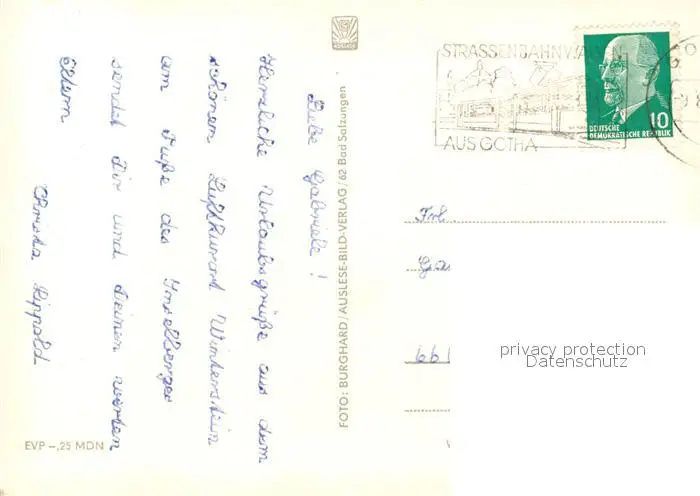 Liebe Gabriele!
Herzliche Urlaubsgrüße aus dem
schönen Luftkurort Winterstein
am Fuße des Inselberges
sendet Dir und Deinen werten
Eltern
Christa Lippold
EVP -,25 MDN
FOTO: BURGHARD/AUSLESE-BILD-VERLAG/62 Bad Salzungen
STRASSENBAHNWAGEN
AUS GOTHA
10
DEUTSCHE
DEMOKRATISCHE REPUBLIK
Frl
66
privacy protection
Datenschutz